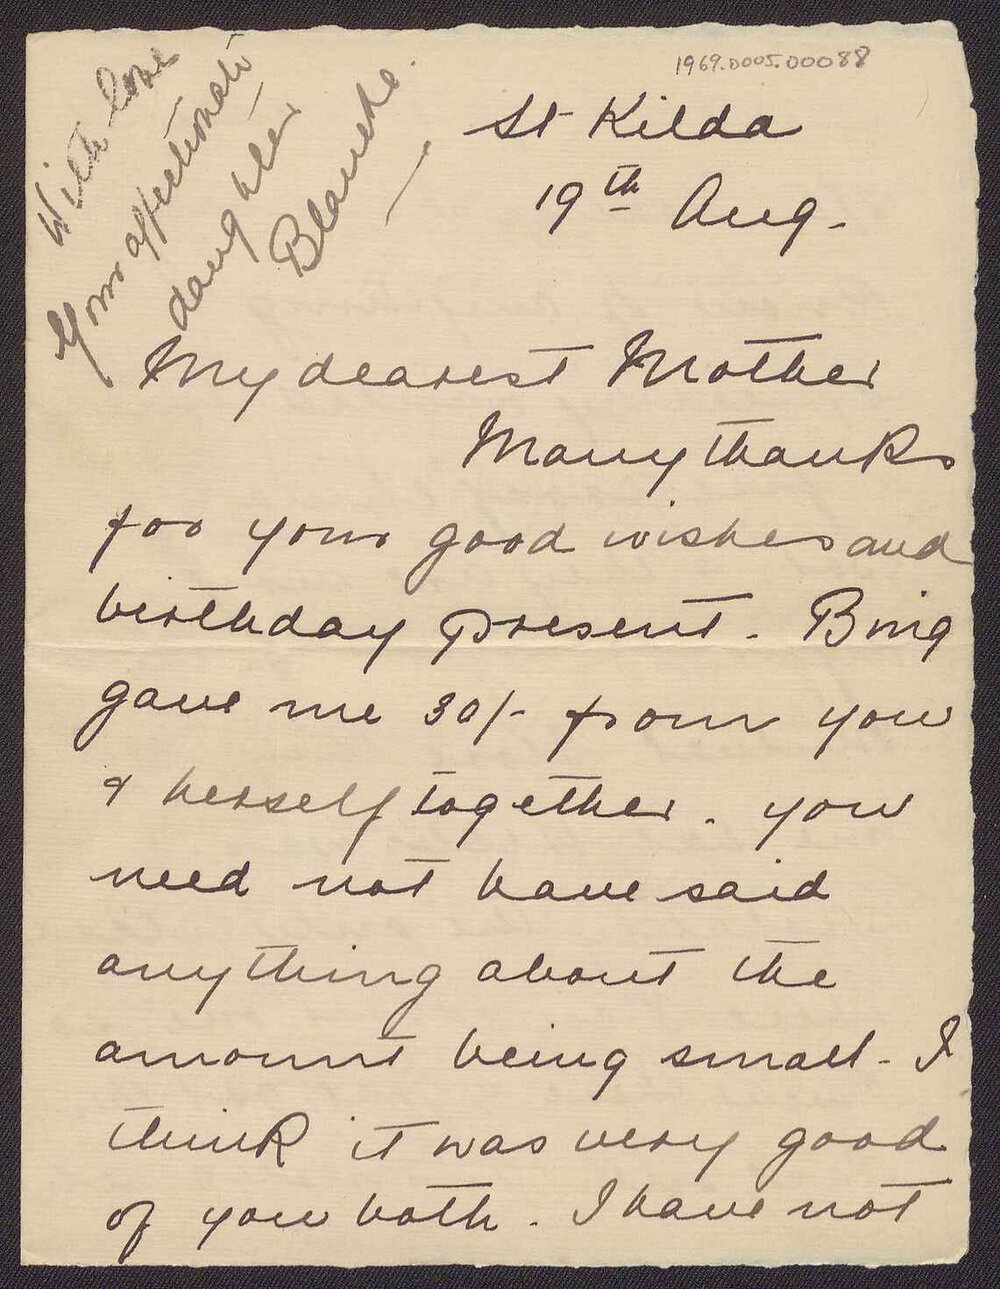 1969.0005.00088
With love
Your affectionate
daughter
Blanche.
St Kilda
19th Aug.
My dearest Mother
Many thanks
for your good wishes and
birthday present. Bing
gave me 30/- from you
& herself together. you
need not have said
anything about the
amount being small - I
think it was very good
of you both. I have not